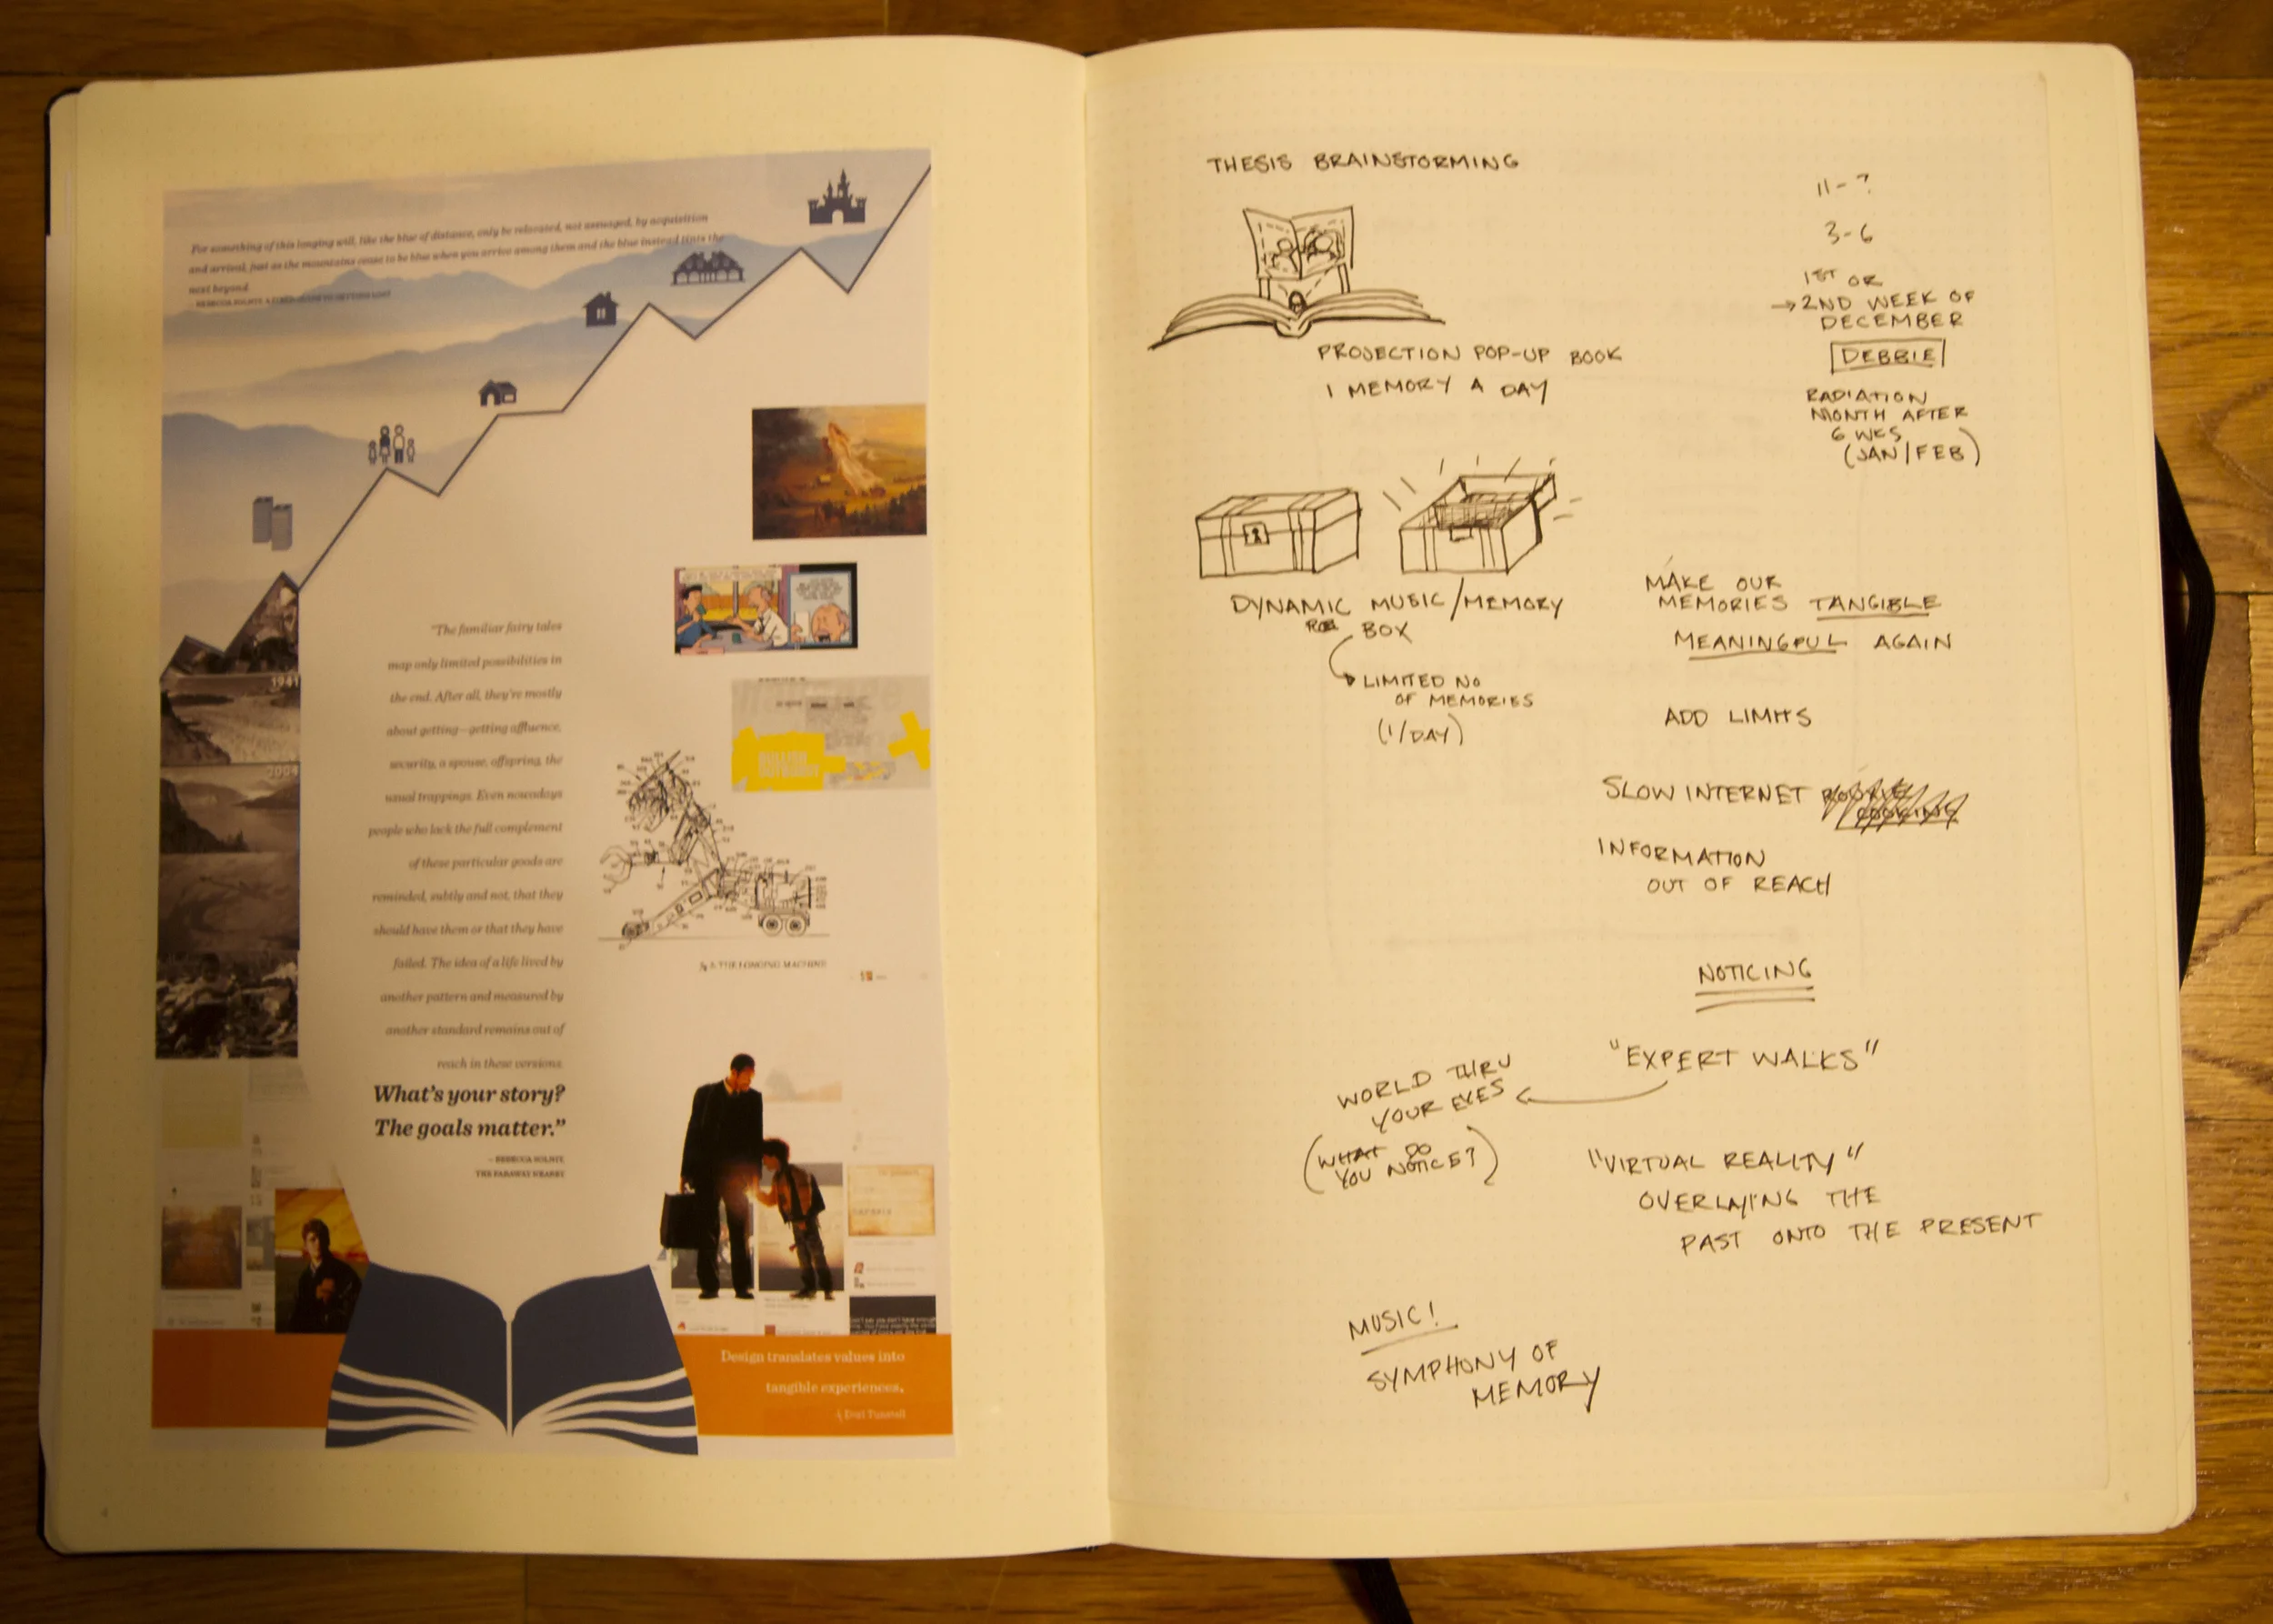 For something of this longing will, like the blue of distance, only be relocated, not assuaged, by acquisition
and arrival, just as the mountains cease to be blue when you arrive among them and the blue instead tints the
next beyond.
1941
2004
"The familiar fairy tales
map only limited possibilities in
the end. After all, they're mostly
about getting—getting affluence,
security, a spouse, offspring, the
usual trappings. Even nowadays
people who lack the full complement
of these particular goods are
reminded, subtly and not, that they
should have them or that they have
failed. The idea of a life lived by
another pattern and measured by
another standard remains out of
reach in these versions.
What's your story?
The goals matter."
– REBECCA SOLNIT,
THE FARAWAY NEARBY
THE LONGING MACHINE
Design translates values into
tangible experiences.
THESIS BRAINSTORMING
PROJECTION POP-UP BOOK
1 MEMORY A DAY
11-?
3-6
1ST OR
→2ND WEEK OF
DECEMBER
DEBBIE
RADIATION
MONTH AFTER
6 WKS
(JAN/FEB)
DYNAMIC MUSIC/MEMORY
BOX
LIMITED NO
OF MEMORIES
(1/DAY)
MAKE OUR
MEMORIES TANGIBLE
MEANINGFUL AGAIN
ADD LIMITS
SLOW INTERNET
INFORMATION
OUT OF REACH
NOTICING
"EXPERT WALKS"
WORLD THRU
YOUR EYES
(WHAT DO
YOU NOTICE?)
"VIRTUAL REALITY"
OVERLAYING THE
PAST ONTO THE PRESENT
MUSIC!
SYMPHONY OF
MEMORY